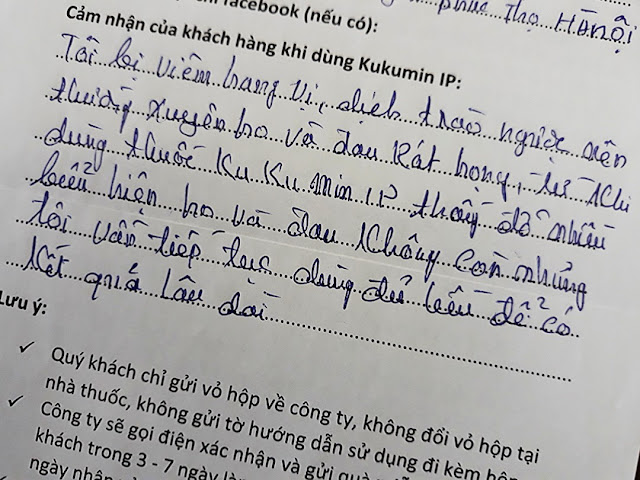 facebook (nếu có):
phúc Thọ Hà nội
Cảm nhận của khách hàng khi dùng Kukumin IP:
Tôi bị viêm hang vị, dịch trào ngược nên
thường xuyên ho và đau Rát họng, từ khi
dùng thuốc Ku Ku min IP thấy đỡ nhiều
biểu hiện ho và đau không còn nhưng
tôi vẫn tiếp tục dùng đủ liều để có
kết quả lâu dài
Lưu ý:
✓ Quý khách chỉ gửi vỏ hộp về công ty, không đổi vỏ hộp tại
nhà thuốc, không gửi tờ hướng dẫn sử dụng đi kèm
✓ Công ty sẽ gọi điện xác nhận và gửi quà
khách trong 3 - 7 ngày
ngày